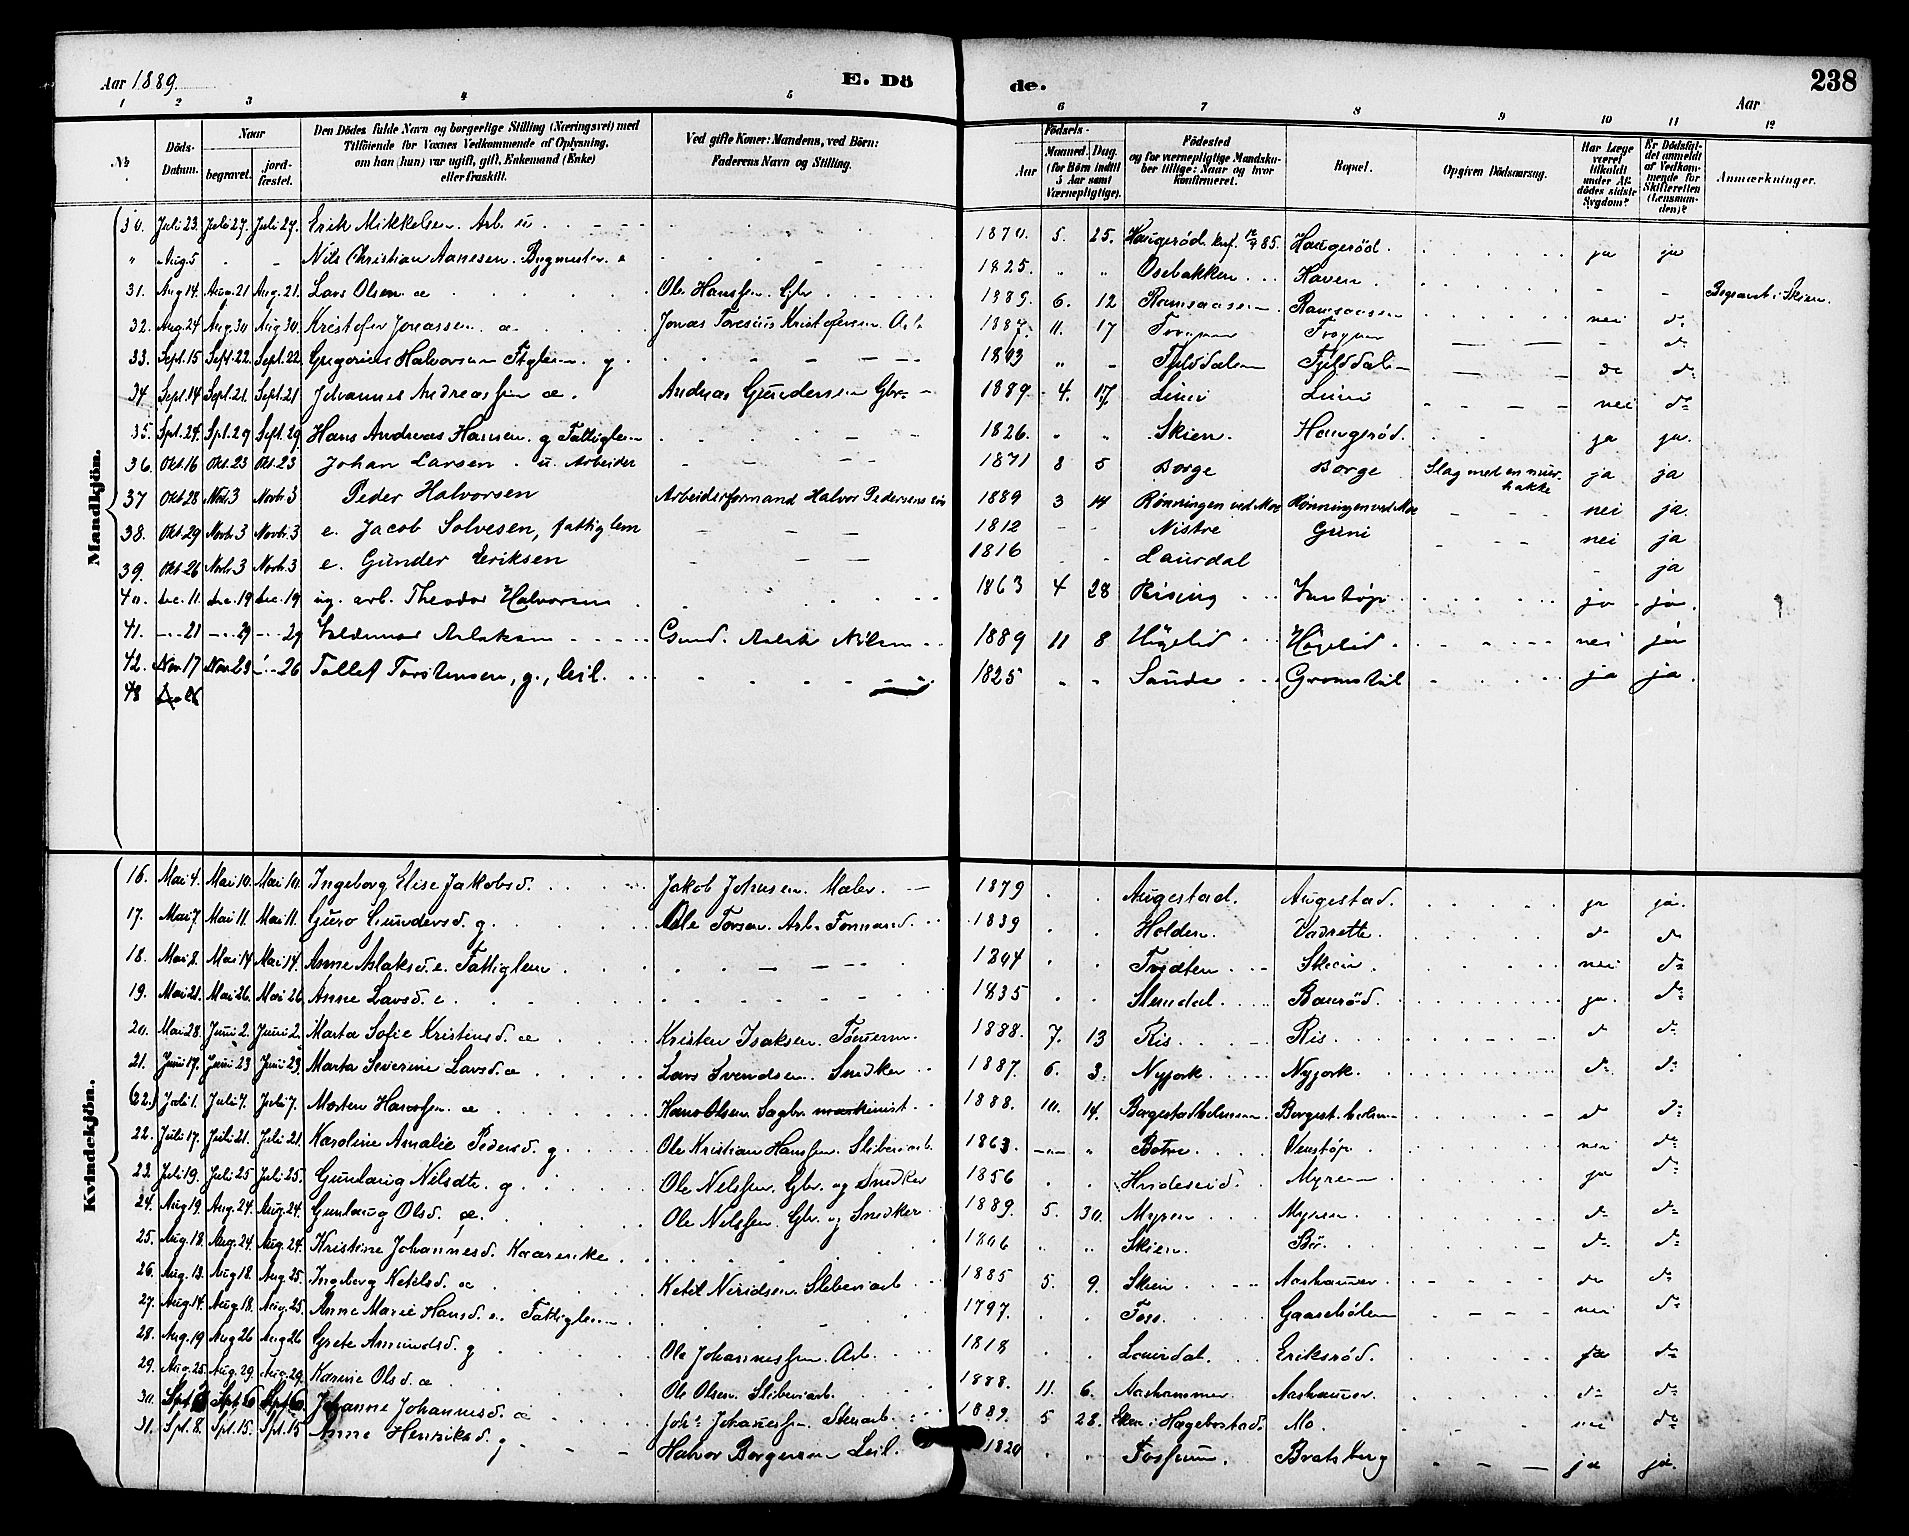 Aar 1889.
E. Dö
de.
238
Aar
1 2 3 4 5 6 7 8 9 10 11 12
No.
Döds-Datum.
Naar
begravet.
jord-fæstet.
Den Dödes fulde Navn og borgerlige Stilling (Næringsvei) med
Tilföiende for Voxnes Vedkommende af Oplysning,
om han (hun) var ugift, gift, Enkemand (Enke)
eller fraskilt.
Ved gifte Koner: Mandens, ved Börn:
Faderens Navn og Stilling.
Födsels-
Aar
Maaned. Dag.
(for Börn indtil
5 Aar samt
Værnepligtige).
Födested
og for værnepligtige Mandsku-
ber tillige: Naar og hvor
konfirmeret.
Bopæl.
Opgiven Dödsaarsag.
Har Læge
været
tilkaldt
under Af-
dödes sidste
Sygdom?
Er Dödsfal-
det anmeldt
af Vedkom-
mende for
Skifteretten
(Lensman-
den)?
Anmærkninger.
Mandkjön.
30. Juli 23. Juli 27. Juli 27. Erik Mikkelsen. Arb. u. 1870. 5. 25. Haugerød. knf. 85. Haugerød. ja ja
" Aug 5 - - Nils Christian Aanesen. Bygmester. e 1825. " " Osebakken Haven. - - Begravet i Skien.
31. Aug 14. Aug. 21 Aug. 21. Lars Olsen æ Ole Hanssen. Gbr. 1889. 6. 12 Ramsaasen Ramsaasen nei do
32. Aug. 24 Aug 30 Aug 30. Kristofer Jonassen. æ Jonas Toresius Kristofersen Arb 1887. 11. 17 Frogner Frogner - do
33. Sept. 15 Sept. 22. Sept. 22. Gregorius Halvorsen Ftglem. g. " - Fjelddalen Fjelddalen do do
34 Sept. 14 Sept. 21. Sept. 21 Johannes Andreassen æ. Andreas Gundersen Gbr. 1889. 4. 17 Luni Luni nei do
35. Spt. 24. Spt. 29 Sept. 29. Hans Andreas Hansen. g Fattiglem 1826. " " Skien. Haugerød. ja ja.
36. Okt. 16 Okt. 23 Okt. 23 Johan Larsen. u. Arbeider 1871 8 5 Borge Borge Slag med en murhakke ja ja
37 Okt. 28 Nvbr. 3 Novbr 3 Peder Halvorsen Arbeiderformand Halvor Pedersens 1889 3 14 Rønningen ved Moe Rønningen ved Moe nei ja.
38. Okt 29 Novbr 3 Novbr. 3 e. Jacob Solvesen, fattiglem 1812 - - Nistre Guni nei ja
39. Okt 26 Novbr. 3 Novbr. 3 e. Gunder Eriksen 1816 Laurdal - ja
40. dec. 11. dec. 19 dec. 19 ug. arb. Theodor Halvorsen 1863 4 28 Rising Venstøp ja ja.
41. - 21 - 29 - 29 Valdemar Aslaksen Gmd. Aslak Nilsen 1889 11 8 Høgelid Høgelid nei ja
42. Nov. 17 Nov. 23 - 26 Tollef Torstensen, g., leil. 1825 " " Saude Gromstul ja ja.
43
Kvindekjön.
16. Mai 4. Mai 10. Mai 10. Ingeborg Elise Jakobsd. Jakob Johnsen. Maler. 1879 Augestad. Augestad. ja ja.
17. Mai 7 Mai 11. Mai 11. Guro Gundersd. g. Ole Torsen. Arb. Formand. 1839 Holden. Vadrette. do do
18. Mai 8. Mai 14 Mai 14. Anne Aslaksd. e. Fattiglem 1804 Tvedten Skien. nei do
19. Mai 21. Mai 26. Mai 26. Anne Larsd. e 1835 Slemdal. Baurød. ja do
20. Mai 28. Juni 2. Juni 2. Marta Sofie Kristensd. æ Kristen Isaksen. Tømerm. 1888. 7. 13 Ris. Ris. do do
21. Juni 17. Juni 23 Juni 23. Marta Severine Larsd. æ Lars Svendsen. Snedker 1887. 6. 3. Nyjork. Nyjork. do do
(22.) Juli 1. Juli 7. Juli 7. Morten Hanssen. æ Hans Olsen. Sagbr. maskinist. 1888. 10. 14. Borgestadholmen. Borgest.holmen do do
22. Juli 17. Juli 21. Juli 21. Karoline Amalie Pedersd. g Ole Kristian Hanssen. Sliberiarb. 1863. " Botne. Venstøp. nei do
23. Juli 19. Juli 25 Juli 25. Gunlaug Nilsdtr. g Ole Nilssen. Gbr. og Snedker 1856 Hvideseid. Myren ja do
24. Aug 19. Aug. 24. Aug. 24. Gunlaug Olsd. æ. Ole Nilssen. Gbr. og Snedker 1889. 5. 30. Myren Myren. do do
25. Aug. 18. Aug. 24. Aug. 24. Kristine Johannesd. Kaarenke 1806 " " Skien. Bø. do do
26. Aug. 13. Aug 18. Aug. 25. Ingeborg Ketilsd. æ Ketil Neridsen. Sliberiarb 1885 5 9. Skien Aashamer. do do
27. Aug 14. Aug. 18. Aug. 25. Anne Marie Hansd. e. Fattiglem 1797. Foss. Gaasehølen nei do
28. Aug. 19 Aug 26 Aug 26 Grete Amundsd. g Ole Johannessen. Arb. 1818 Laurdal. Eriksrød. ja do
29. Aug. 25. Aug. 29 Aug. 29. Karine Olsd. æ Ole Olsen. Sliberiarb. 1888. 11. 6. Aashammer. Aashamer. do do
30. Spt. Spt. 6 Spt. 6 Johanne Johannesd. æ Johs Johanessen 1889. 5 28. Skien i Hægebostad. Mo. nei do
31. Spt. 8. Spt. 15. Spt. 15 Anne Henriksd. g Halvor Borgersen Leil. 1820 Fossum. Bratsberg ja ja.